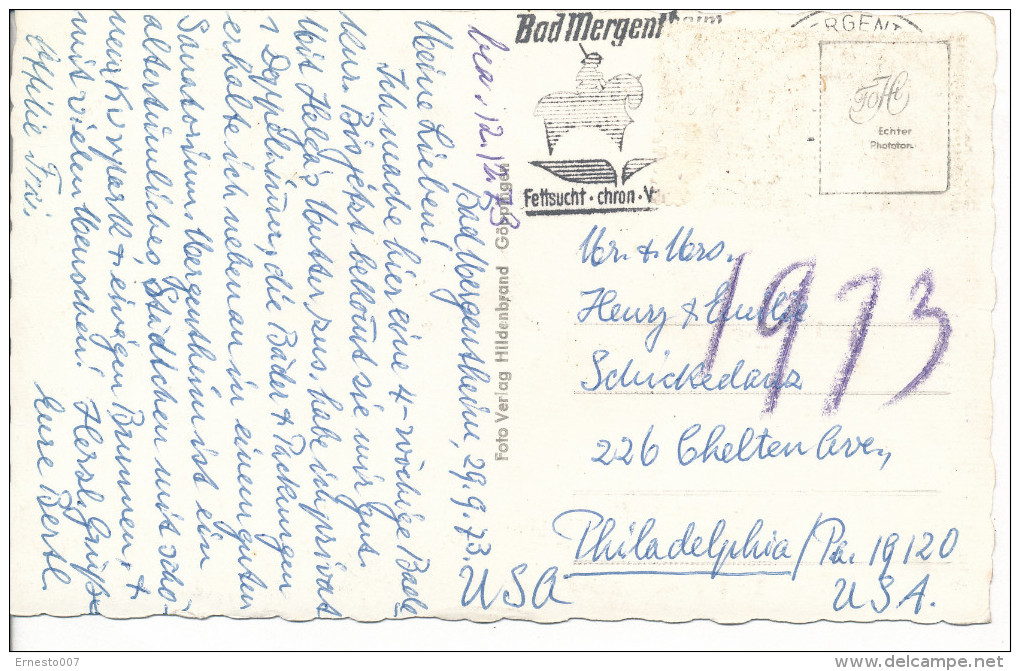 Bad Mergentheim, 29.9.73.
Meine Lieben!
Ich mache hier eine 4-wöchige Bade
kur. Bis jetzt bekommt sie mir gut.
Mit Helga's Mutter zus. habe ich privat
1 Doppelzimmer, die Bäder & Packungen
erhalte ich nebenan in einem guten
Sanatorium. Mergentheim ist ein
altertümliches Städtchen mit schö-
nem Kurpark & einigen Brunnen, &
mit vielen Menschen! Herzl. Grüße
Eure Bertl.
Foto Verlag Hildenbrand Göppingen
Bad Mergentheim
Fettsucht · chron. V
RGENT
ToHi
Echter
Phototon.
Mr. & Mrs.
Henry & Emilie
Schickedanz
226 Chelten Ave,
Philadelphia/Pa. 19120
USA
U.S.A.
1973
Ernesto007
delcampe.net